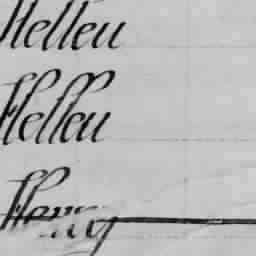 Helleu
Helleu
Henry